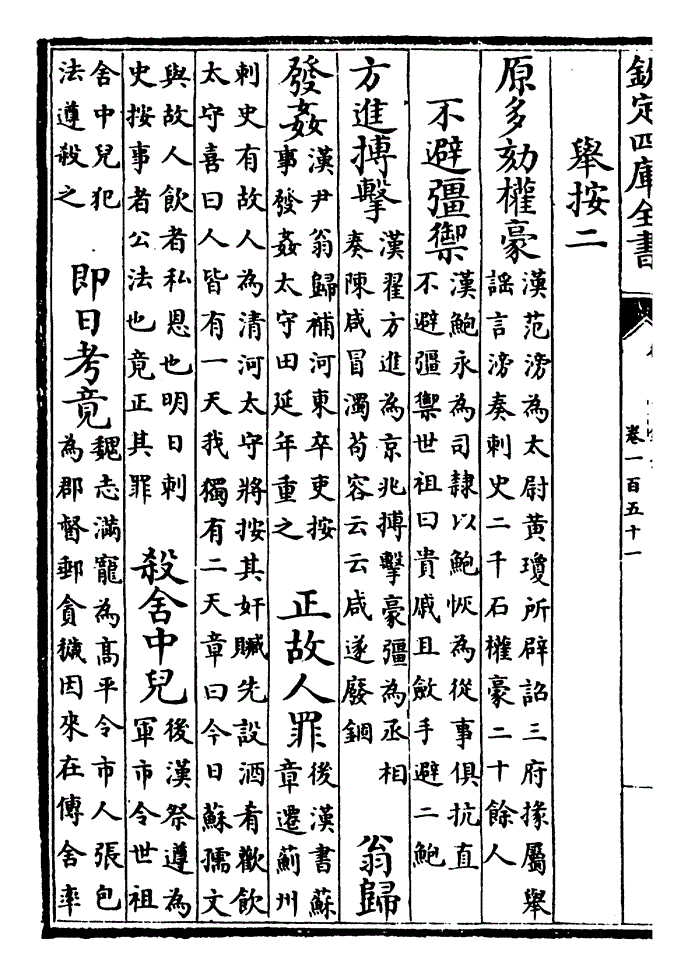 欽定四庫全書
卷一百五十一
舉按二
原多劾權豪 漢范滂為太尉黃瓊所辟詔三府掾屬舉謡言滂奏刺史二千石權豪二十餘人
不避彊禦 漢鮑永為司隸以鮑恢為從事俱抗直不避彊禦世祖曰貴戚且斂手避二鮑
方進搏擊 漢翟方進為京兆搏擊豪彊為丞相奏陳咸冒濁苟容云云咸遂廢錮 翁歸
發姦 漢尹翁歸補河東卒吏按事發姦太守田延年重之 正故人罪 後漢書蘇章遷薊州
刺史有故人為清河太守將按其奸贓先設酒肴歡飲太守喜曰人皆有一天我獨有二天章曰今日蘇孺文
與故人飲者私恩也明日刺史按事者公法也竟正其罪 殺舍中兒 後漢祭遵為軍市令世祖
舍中兒犯法遵殺之 即日考竟 魏志滿寵為高平令市人張包為郡督郵貪穢因來在傳舍率